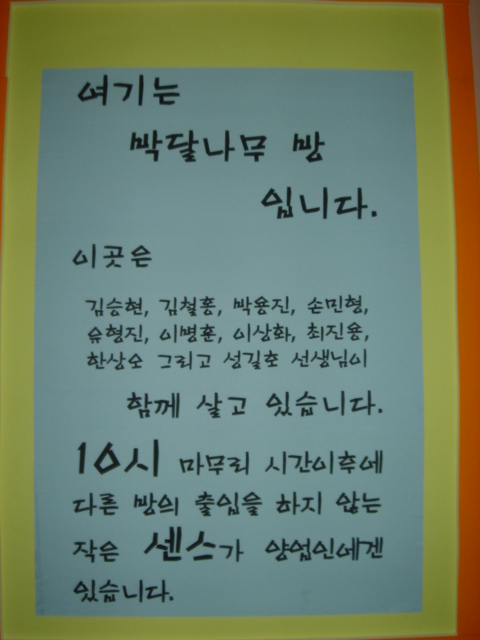 여기는
박달나무 방
입니다.
이곳은
김승현, 김철홍, 박용진, 손민형,
유형진, 이병훈, 이상화, 최진용,
한상오 그리고 성길호 선생님이
함께 살고 있습니다.
10시 마무리 시간이후에
다른 방의 출입을 하지 않는
작은 센스가 양업인에겐
있습니다.